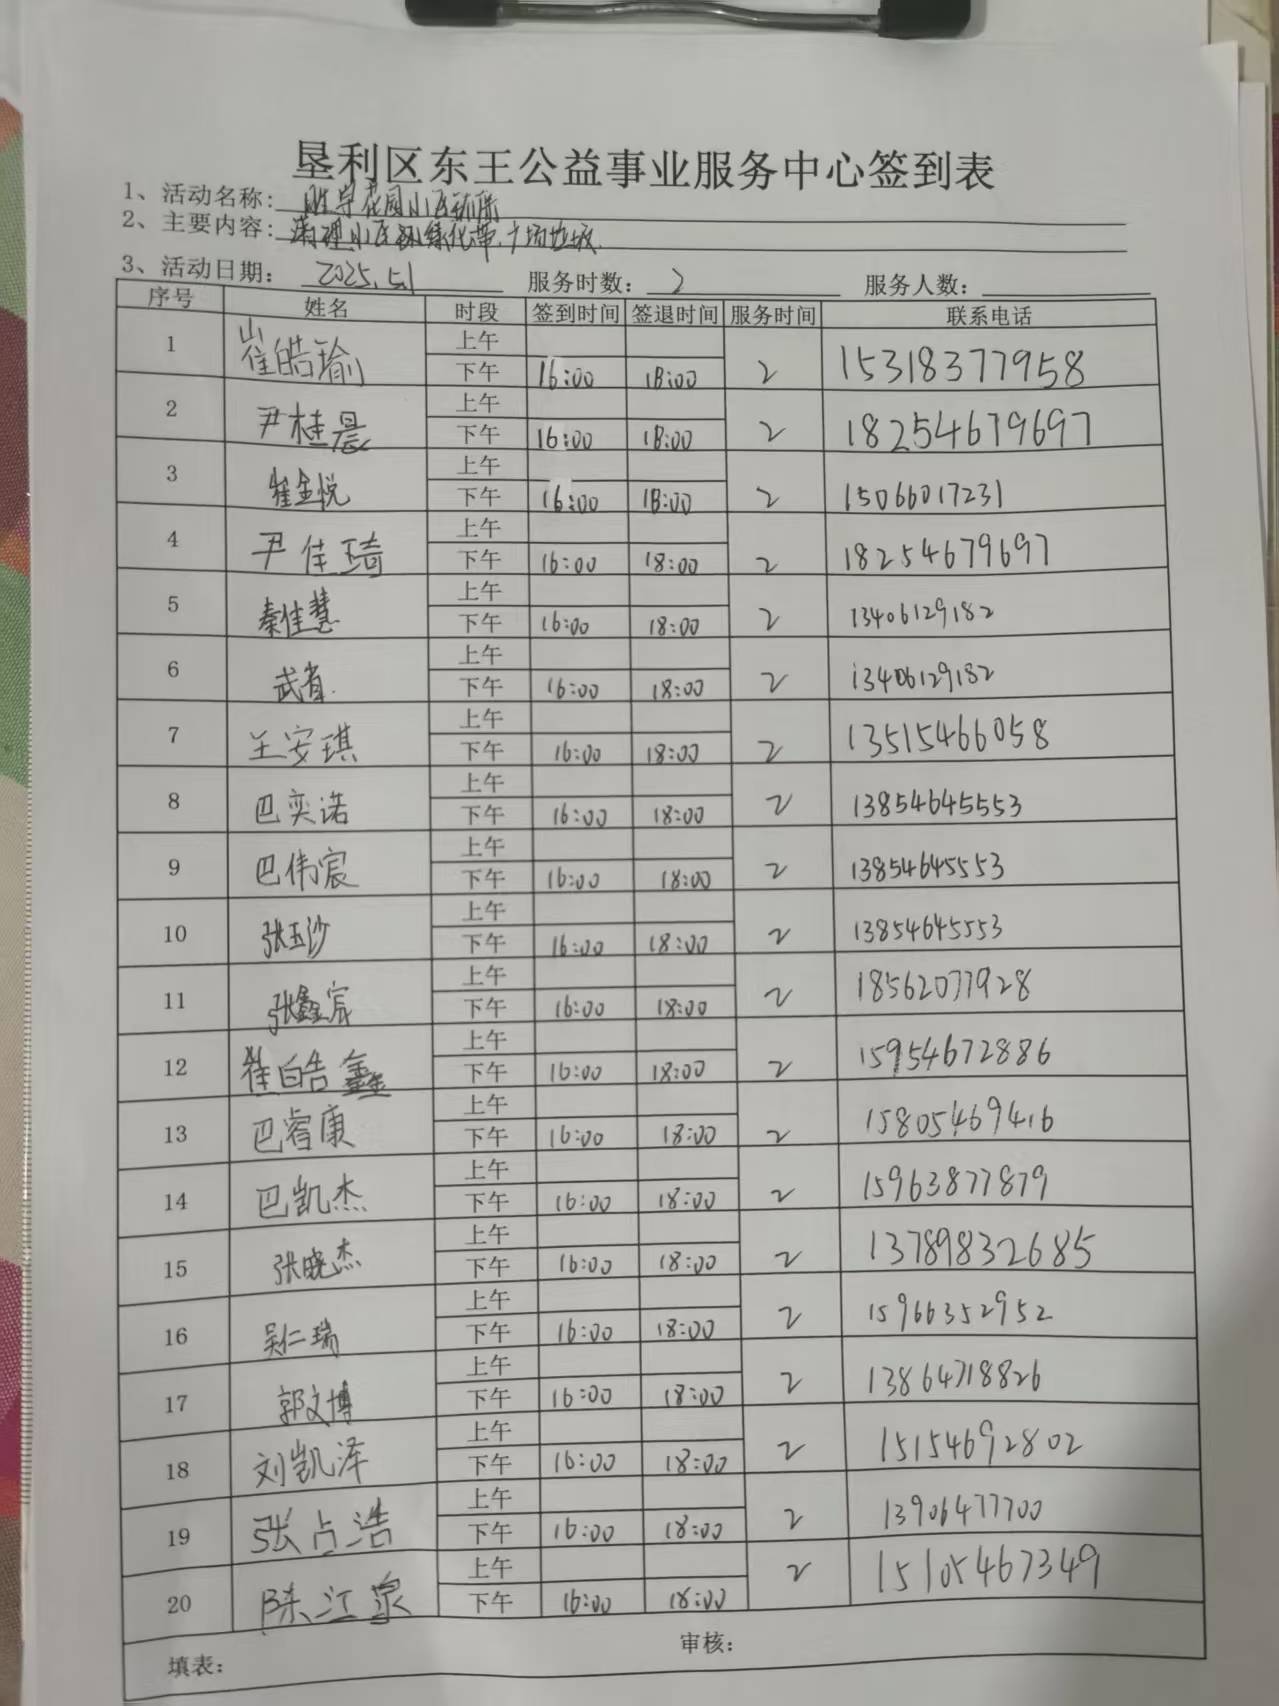 垦利区东王公益事业服务中心签到表
1、活动名称: 胜宇花园小区环保
2、主要内容: 清理小区绿化带,广场垃圾
3、活动日期: 2025.5.1 服务时数: 2 服务人数:
序号 姓名 时段 签到时间 签退时间 服务时间 联系电话
1 崔皓瑜 上午
下午 16:00 18:00 2 15318377958
2 尹桂晨 上午
下午 16:00 18:00 2 18254679697
3 崔金悦 上午
下午 16:00 18:00 2 15066017231
4 尹佳琦 上午
下午 16:00 18:00 2 18254679697
5 秦佳慧 上午
下午 16:00 18:00 2 13406129182
6 武省 上午
下午 16:00 18:00 2 13406129182
7 王安琪 上午
下午 16:00 18:00 2 13515466058
8 巴奕诺 上午
下午 16:00 18:00 2 13854645553
9 巴伟宸 上午
下午 16:00 18:00 2 13854645553
10 张玉沙 上午
下午 16:00 18:00 2 13854645553
11 张鑫宸 上午
下午 16:00 18:00 2 18562077928
12 崔皓鑫 上午
下午 16:00 18:00 2 15954672886
13 巴睿康 上午
下午 16:00 18:00 2 15805469416
14 巴凯杰 上午
下午 16:00 18:00 2 15963877879
15 张晓杰 上午
下午 16:00 18:00 2 13789832685
16 吴仁瑞 上午
下午 16:00 18:00 2 15966352952
17 郭文博 上午
下午 16:00 18:00 2 13864718826
18 刘凯泽 上午
下午 16:00 18:00 2 15154692802
19 张占浩 上午
下午 16:00 18:00 2 13906477700
20 陈江泉 上午
下午 16:00 18:00 2 15105467349
填表: 审核: